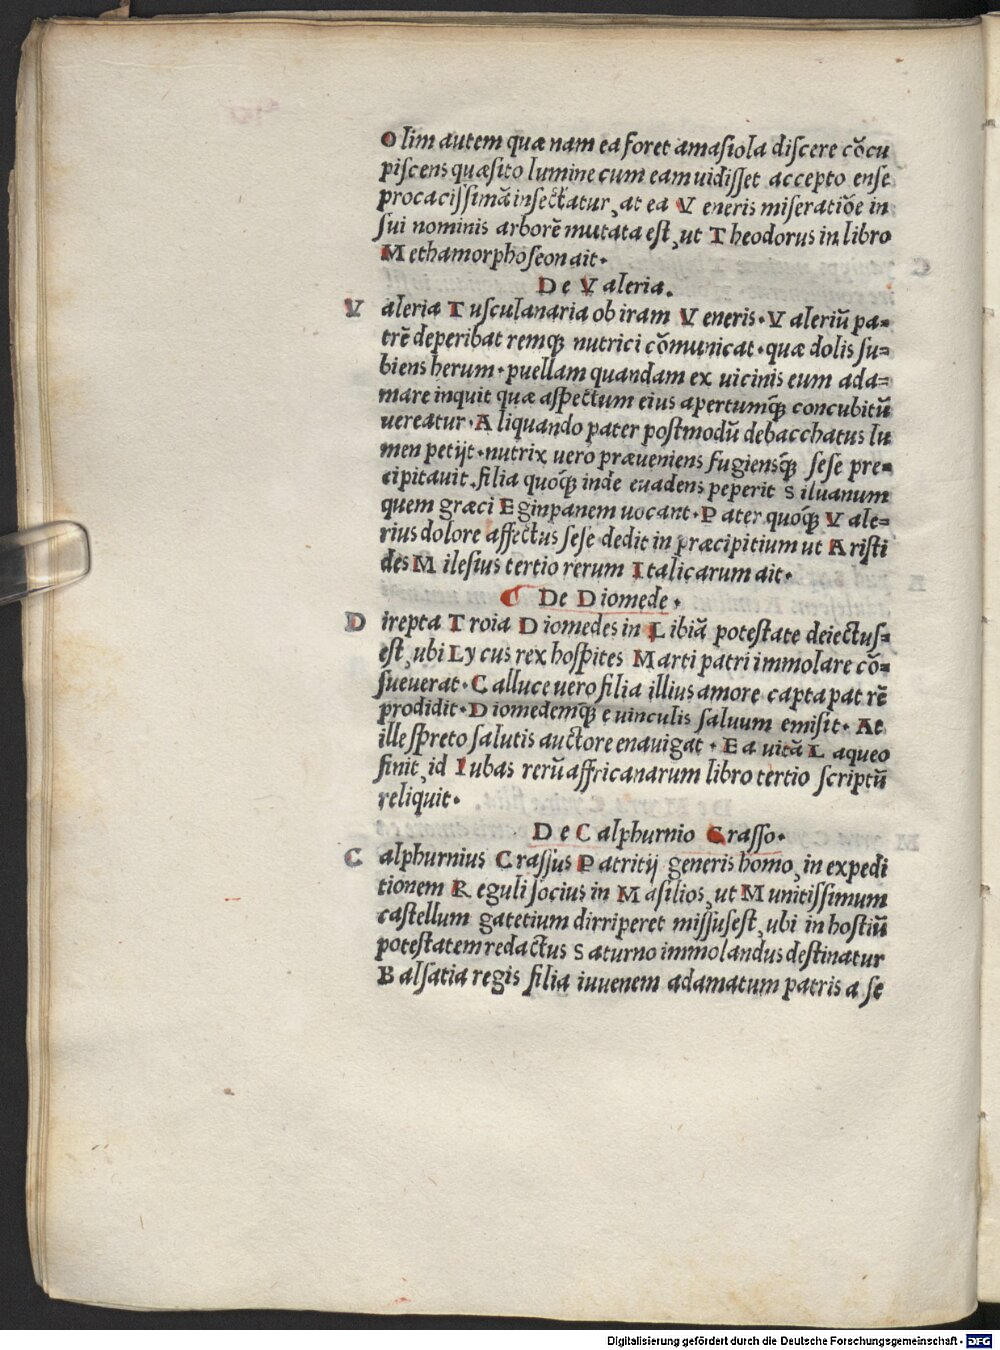 Olim autem quæ nam ea foret amasiola discere cõcu
piscens quæsito lumine cum eam uidisset accepto ense
procacissimã insectatur, at ea Veneris miseratiõe in
sui nominis arborẽ mutata est, ut Theodorus in libro
Methamorphoseon ait.
De Valeria.
Valeria Tusculanaria ob iram Veneris. Valeriũ pa=
trẽ deperibat remq̃ nutrici cõmunicat. quæ dolis su=
biens herum. puellam quandam ex uicinis eum ada=
mare inquit quæ aspectum eius apertumq̃ concubitũ
uereatur. Aliquando pater postmodũ debacchatus lu
men petijt. nutrix uero præueniens fugiensq̃ sese pre=
cipitauit. filia quoq̃ inde euadens peperit Siluanum
quem græci Eginpanem uocant. Pater quoq̃ Vale=
rius dolore affectus sese dedit in præcipitium ut Aristi
des Milesius tertio rerum Italicarum ait.
De Diomede.
Direpta Troia Diomedes in Libiã potestate deiectus=
est, ubi Lycus rex hospites Marti patri immolare cõ=
sueuerat. Calluce uero filia illius amore capta patrẽ
prodidit. Diomedemq̃ e uinculis saluum emisit. At
ille spreto salutis auctore enauigat. Ea uitã Laqueo
finit, id Iubas rerũ affricanarum libro tertio scriptũ
reliquit.
De Calphurnio Crasso.
Calphurnius Crassus Patritij generis homo, in expedi
tionem Reguli socius in Masilios, ut Munitissimum
castellum gatetium dirriperet missusest, ubi in hostiũ
potestatem redactus Saturno immolandus destinatur
Balsatia regis filia iuuenem adamatum patris a se
Digitalisierung gefördert durch die Deutsche Forschungsgemeinschaft - DFG